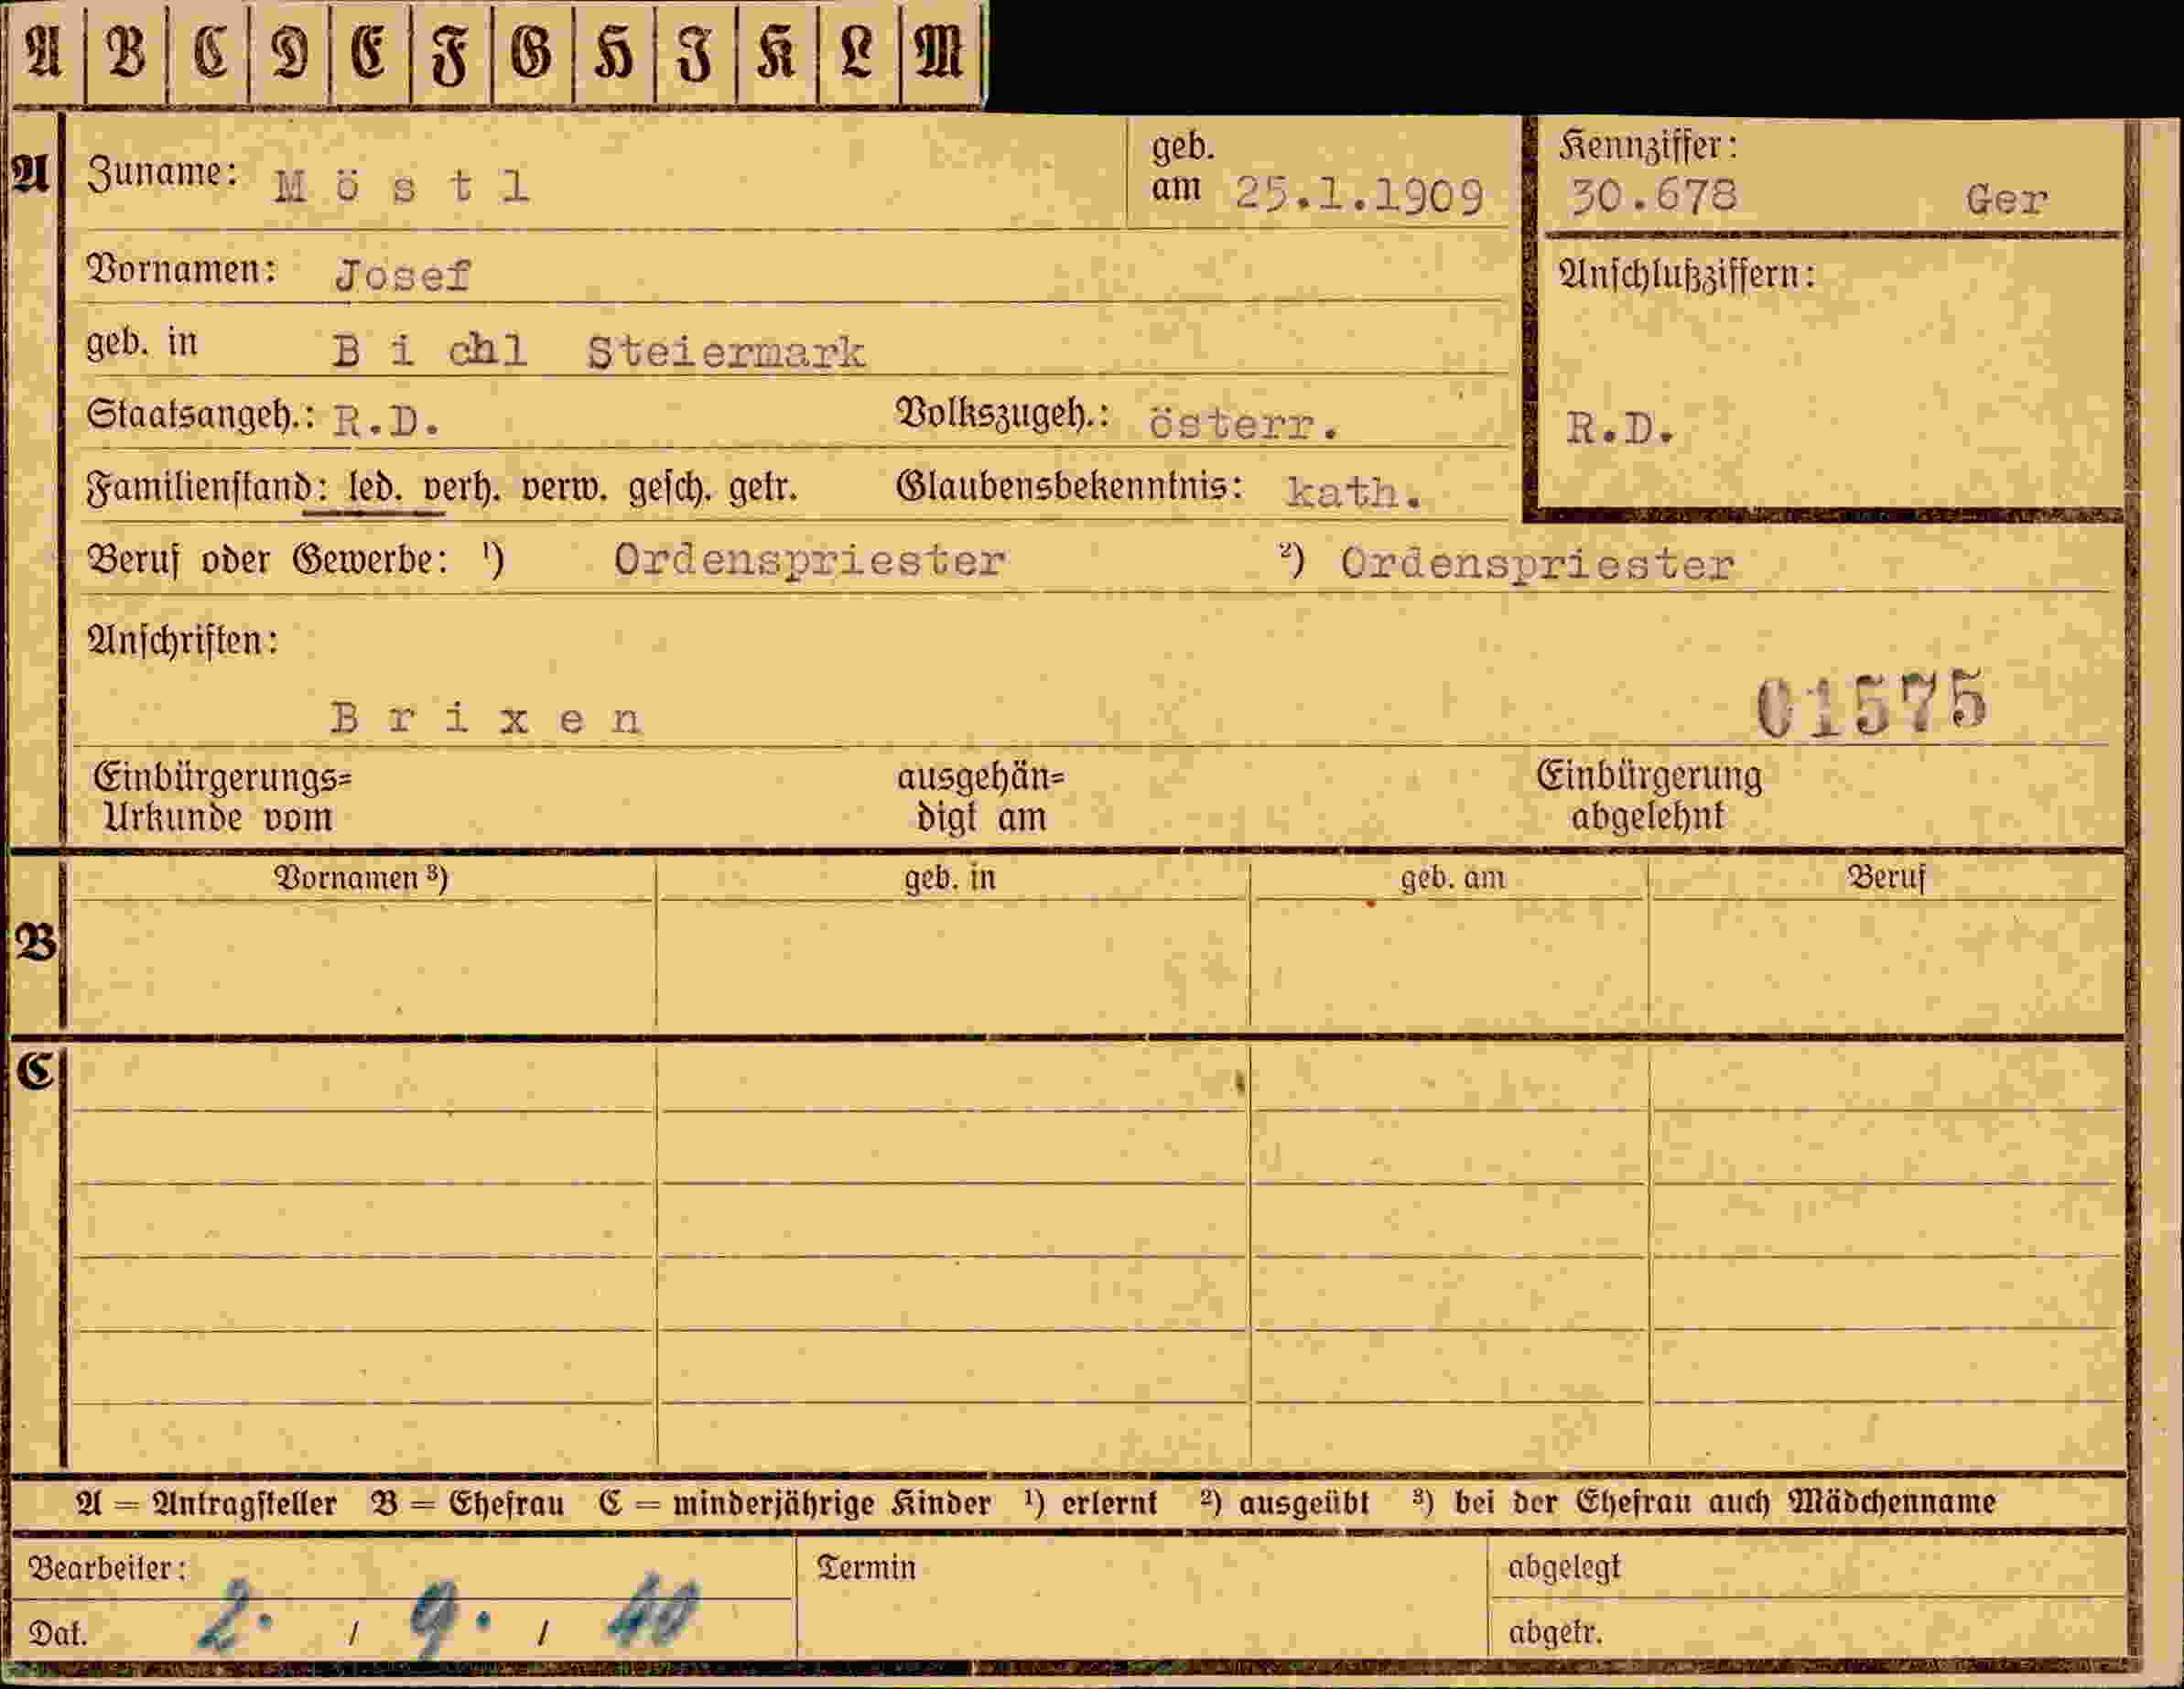 A B C D E F G H I K L M
A Zuname: Möstl geb. am 25.1.1909 Kennziffer: 30.678 Ger
Vornamen: Josef Anschlußziffern:
geb. in Bichl Steiermark
Staatsangeh.: R.D. Volkszugeh.: österr. R.D.
Familienstand: led. verh. verw. gesch. getr. Glaubensbekenntnis: kath.
Beruf oder Gewerbe: ¹) Ordenspriester ²) Ordenspriester
Anschriften:
Brixen 01575
Einbürgerungs= ausgehän= Einbürgerung
Urkunde vom digt am abgelehnt
Vornamen ³) geb. in geb. am Beruf
B
C
A = Antragsteller B = Ehefrau C = minderjährige Kinder ¹) erlernt ²) ausgeübt ³) bei der Ehefrau auch Mädchenname
Bearbeiter: Termin abgelegt
Dat. 2. / 9. / 40 abgetr.